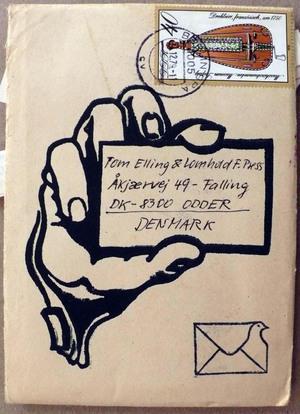 Drehleier, französisch, um 1750
Tom Elling & Lomholt F. Press
Åkjærvej 49 - Falling
DK-8300 ODDER
DENMARK